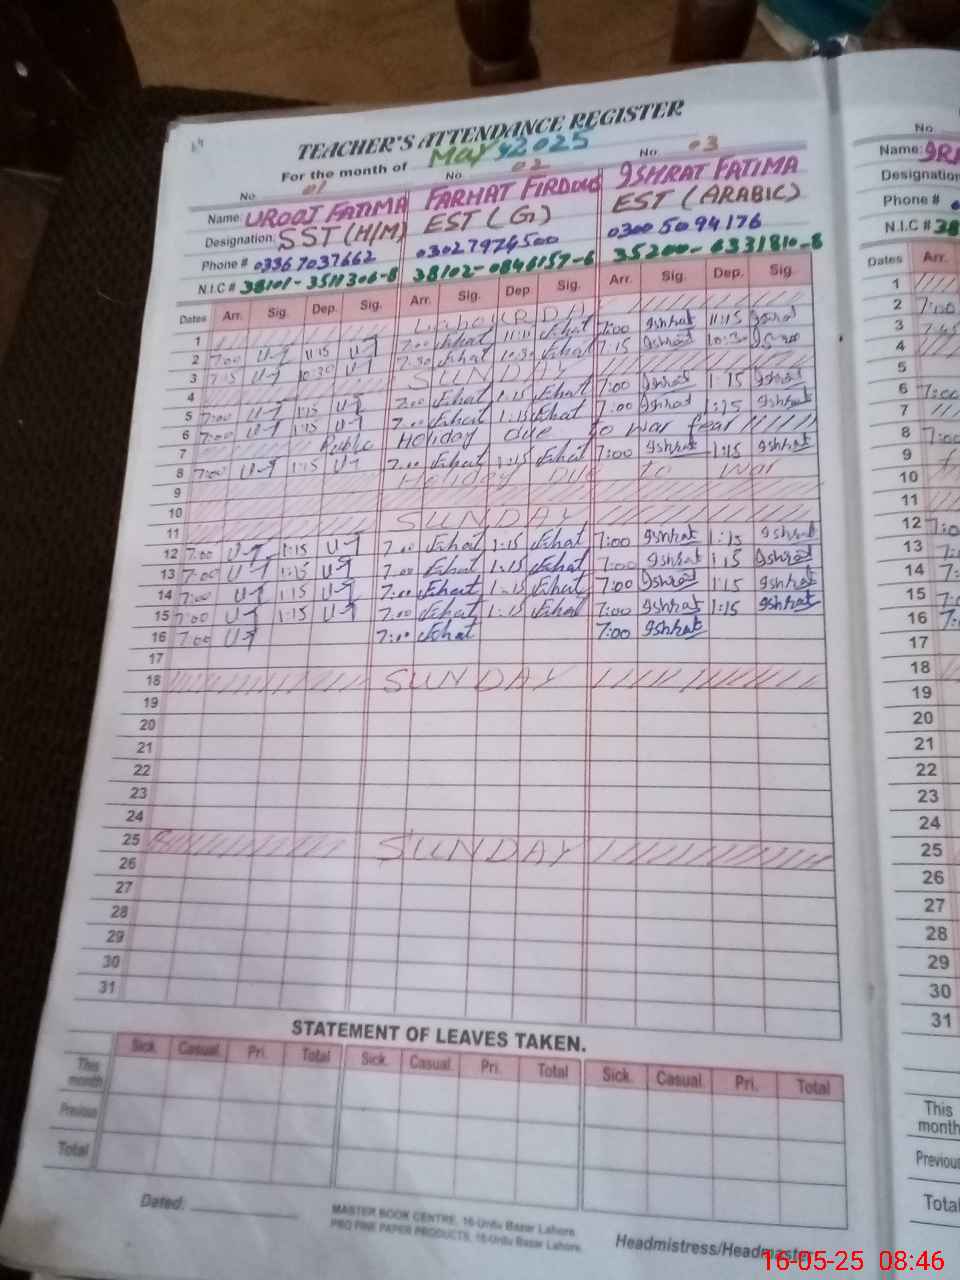 TEACHER'S ATTENDANCE REGISTER
For the month of May 2025
No. 01 No. 02 No. 03
Name: UROOJ FATIMA FARHAT FIRDOUS ISHRAT FATIMA
Designation: SST (H/M) EST (G) EST (ARABIC)
Phone # 03367037662 03027974500 03005094176
N.I.C # 38101-3511306-8 38102-0846157-6 35200-6331810-8
Dates Arr. Sig. Dep. Sig. Arr. Sig. Dep Sig. Arr. Sig. Dep. Sig.
1 DAY
2 7:00 U-J 11:15 U-J 7:00 11:15 7:00 Ishrat 11:15 Ishrat
3 7:15 U-J 10:30 U-J 7:30 10:30 7:15 Ishrat 10:30
4 SUNDAY
5 7:00 U-J 1:15 U-J 7:00 1:15 7:00 Ishrat 1:15 Ishrat
6 7:00 U-J 1:15 U-J 7:00 1:15 7:00 Ishrat 1:15 Ishrat
7 Public Holiday due to war fear
8 7:00 U-J 1:15 U-J 7:00 1:15 7:00 Ishrat 1:15 Ishrat
9 Holiday Due to War
10
11 SUNDAY
12 7:00 U-J 1:15 U-J 7:00 1:15 7:00 Ishrat 1:15 Ishrat
13 7:00 U-J 1:15 U-J 7:00 1:15 7:00 Ishrat 1:15 Ishrat
14 7:00 U-J 1:15 U-J 7:00 1:15 7:00 Ishrat 1:15 Ishrat
15 7:00 U-J 1:15 U-J 7:00 1:15 7:00 Ishrat 1:15 Ishrat
16 7:00 U-J 7:00 7:00 Ishrat
17
18 SUNDAY
19
20
21
22
23
24
25 SUNDAY
26
27
28
29
30
31
STATEMENT OF LEAVES TAKEN.
Sick. Casual. Pri. Total Sick. Casual. Pri. Total Sick. Casual. Pri. Total
This month
Previous
Total
Dated:
MASTER BOOK CENTRE, 16-Urdu Bazar Lahore.
PRO FINE PAPER PRODUCTS, 16-Urdu Bazar Lahore.
Headmistress/Headmaster
No.
Name:
Designation
Phone #
N.I.C # 38
Dates Arr.
1
2 7:00
3 7:45
4
5
6 7:00
7
8 7:00
9
10
11
12 7:00
13
14
15
16
17
18
19
20
21
22
23
24
25
26
27
28
29
30
31
This month
Previous
Total
16-05-25 08:46